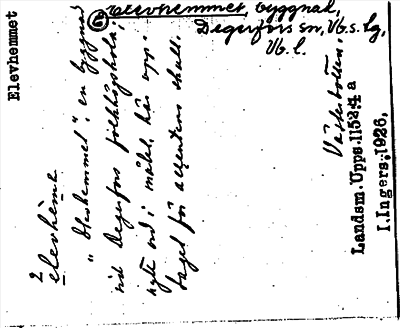 Elevhemmet
Elevhemmet, byggnad,
Degerfors sn, Vb.s. lg,
Vb. l.
2
elevhème
"Elevhemmet", en byggnad
vid Degerfors folkhögskola;
nytt ord i målet, här upp-
taget för accentens skull.
Västerbotten.
Landsm.Upps.11524 a
I.Ingers,1926,